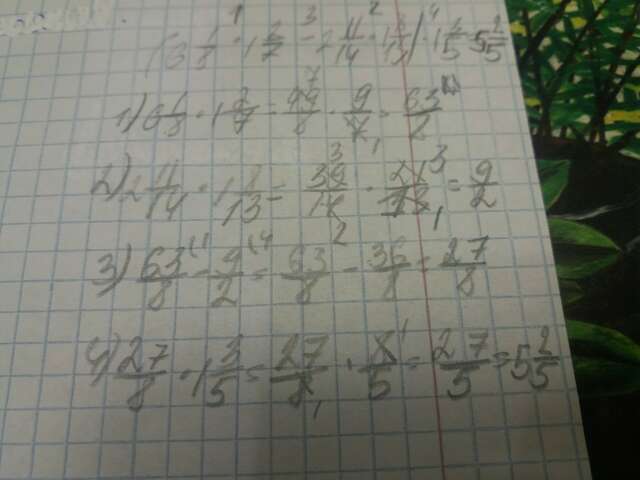 (6 1/8 · 1 2/7 - 2 11/14 · 1 8/13) · 1 3/5 = 5 2/5
1) 6 1/8 · 1 2/7 = 49/8 · 9/7 = 63/8
2) 2 11/14 · 1 8/13 = 39/14 · 21/13 = 9/2
3) 63/8 - 9/2 = 63/8 - 36/8 = 27/8
4) 27/8 · 1 3/5 = 27/8 · 8/5 = 27/5 = 5 2/5